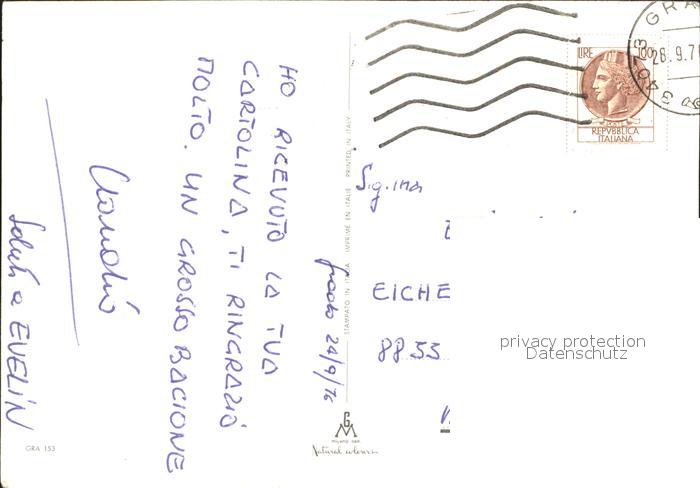 Grado 24/9/76
HO RICEVUTO LA TUA
CARTOLINA, TI RINGRAZIO
MOLTO. UN GROSSO BACIONE
Claudio
Saluti a EVELIN
STAMPATO IN ITALIA IMPRIMÉ EN ITALIE PRINTED IN ITALY
GM
MILANO
Natural colours
GRA 153
LIRE 100
REPVBBLICA
ITALIANA
GRA
28.9.7
Sig.ina
EICHE
8833
privacy protection
Datenschutz